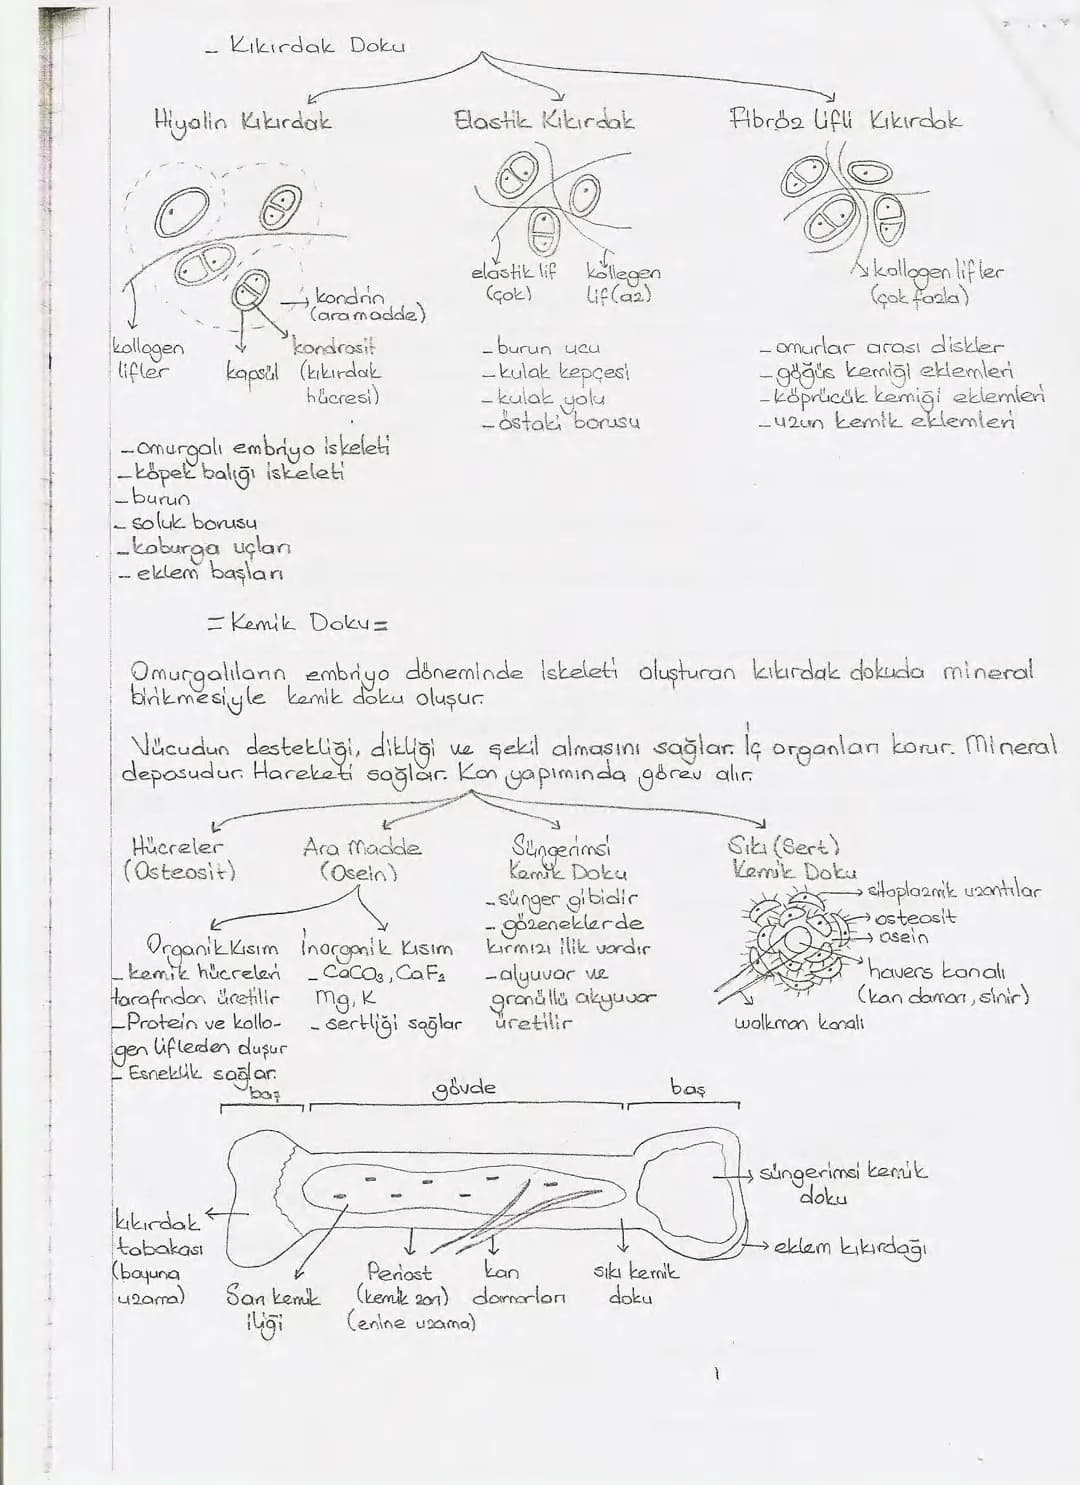 - Kıkırdak Doku
Hiyalin Kıkırdak
kondrin
(ara madde)
kollagen
lifler
kapsül
kondrosit
(kıkırdak
hücresi)
- omurgalı embriyo iskeleti
- köpek balığı iskeleti
- burun
- soluk borusu
- kaburga uçları
- eklem başları
Elastik Kıkırdak
elastik lif
(çok)
kollegen
lif (az)
- burun ucu
- kulak kepçesi
- kulak yolu
- östaki borusu
Fibröz Lifli Kıkırdak
kollogen lifler
(çok fazla)
- omurlar arası diskler
- göğüs kemiği eklemleri
- köprücük kemiği eklemleri
- uzun kemik eklemleri
= Kemik Doku =
Omurgalıların embriyo döneminde iskeleti oluşturan kıkırdak dokuda mineral
birikmesiyle kemik doku oluşur.
Vücudun destekliği, dikliği ve şekil almasını sağlar. İç organları korur. Mineral
deposudur. Hareketi sağlar. Kan yapımında görev alır.
Hücreler
(Osteosit)
Ara Madde
(Osein)
Organik Kısım
- kemik hücreleri
tarafından üretilir
- Protein ve kollo-
gen liflerden duşur
- Esneklik sağlar.
İnorganik Kısım
- CaCO₃, CaF₂
Mg, K
- sertliği sağlar
Süngerimsi
Kemik Doku
- sünger gibidir
- gözeneklerde
kırmızı ilik vardır
- alyuvar ve
granüllü akyuvar
üretilir
Sıkı (Sert)
Kemik Doku
sitoplazmik uzantılar
osteosit
osein
havers kanalı
(kan damarı, sinir)
wolkman kanalı
baş
gövde
baş
süngerimsi kemik
doku
eklem kıkırdağı
kıkırdak
tabakası
(boyuna
uzama)
Sarı kemik
iliği
Periost
(kemik zarı)
(enine uzama)
kan
damarları
sıkı kemik
doku
1